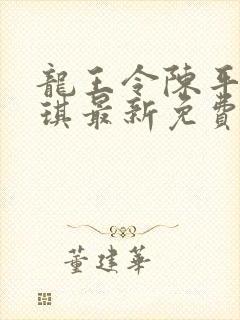 龍王令陳平
琪最新免費
董建華